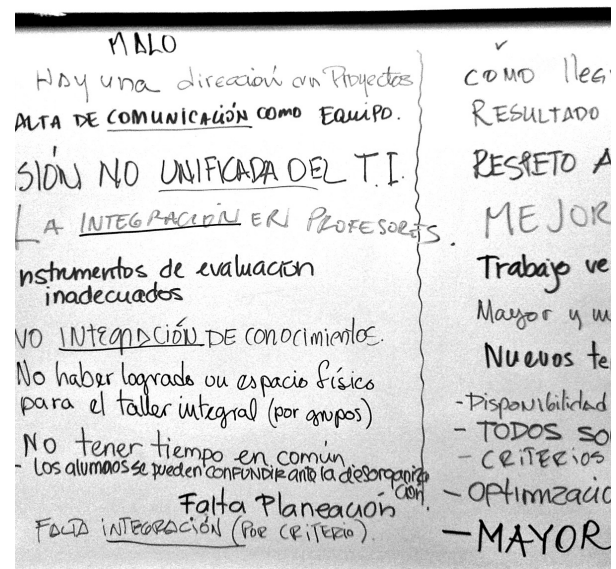 MALO
Hay una dirección con Proyectos
ALTA DE COMUNICACIÓN COMO EQUIPO.
SIÓN NO UNIFICADA DEL T.I.
LA INTEGRACIÓN EN PROFESORES.
nstrumentos de evaluación
inadecuados
NO INTEGRACIÓN DE CONOCIMIENTOS.
No haber logrado un espacio físico
para el taller integral (por grupos)
NO tener tiempo en común
- Los alumnos se pueden CONFUNDIR ante la desorganiza
ción.
Falta Planeación
FALTA INTEGRACIÓN (POR CRITERIO).
CÓMO lleg
RESULTADO
RESPETO A
MEJOR
Trabajo ve
Mayor y m
Nuevos te
- Disponibilidad
- TODOS SO
- CRITERIOS
- OPtimizació
- MAYOR